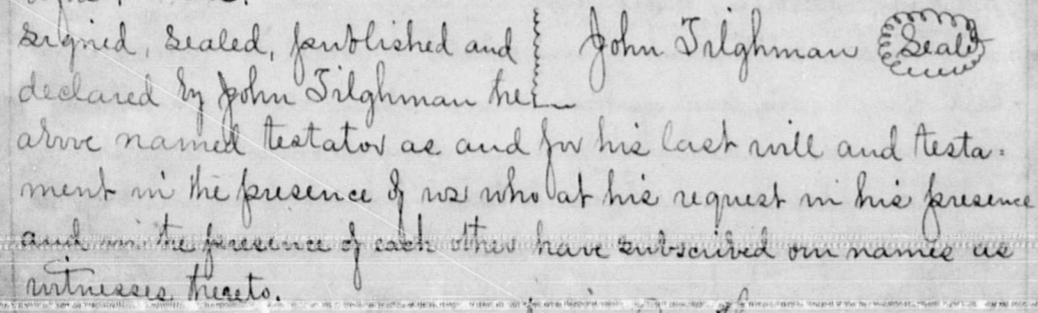 Signed, Sealed, published and John Tilghman Seal
declared by John Tilghman the
above named testator as and for his last will and testa-
ment in the presence of us who at his request in his presence
and in the presence of each other have subscribed our names as
witnesses thereto.